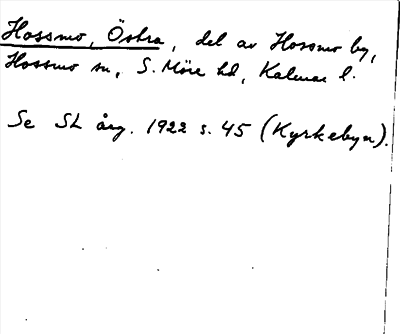 Hossmo, Östra, del av Hossmo by,
Hossmo sn, S. Möre hd, Kalmar l.
Se SL årg. 1922 s. 45 (Kyrkebyn).